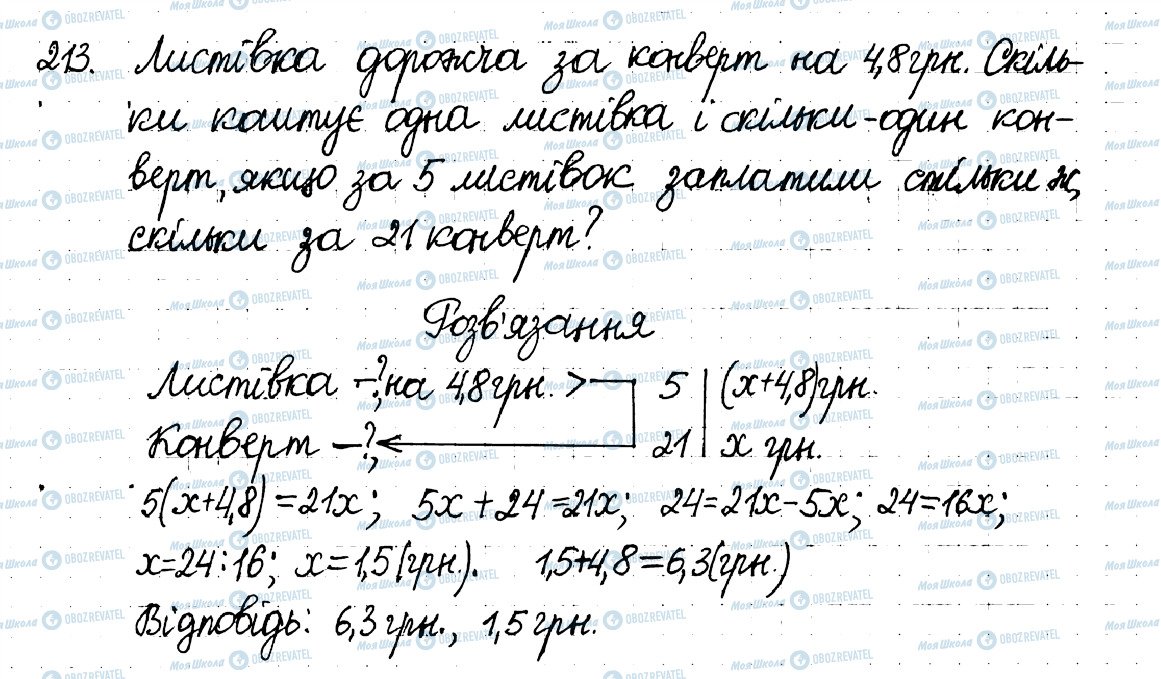 213. Листівка дорожча за конверт на 4,8 грн. Скіль-
ки коштує одна листівка і скільки - один кон-
верт, якщо за 5 листівок заплатили стільки ж,
скільки за 21 конверт?
Розв'язання
Листівка – ?, на 4,8 грн. > 5 | (x+4,8) грн.
Конверт – ?, 21 | x грн.
5(x+4,8) = 21x; 5x + 24 = 21x; 24 = 21x - 5x; 24 = 16x;
x = 24 : 16; x = 1,5 (грн.). 1,5 + 4,8 = 6,3 (грн.)
Відповідь: 6,3 грн., 1,5 грн.
МояШкола OBOZREVATEL